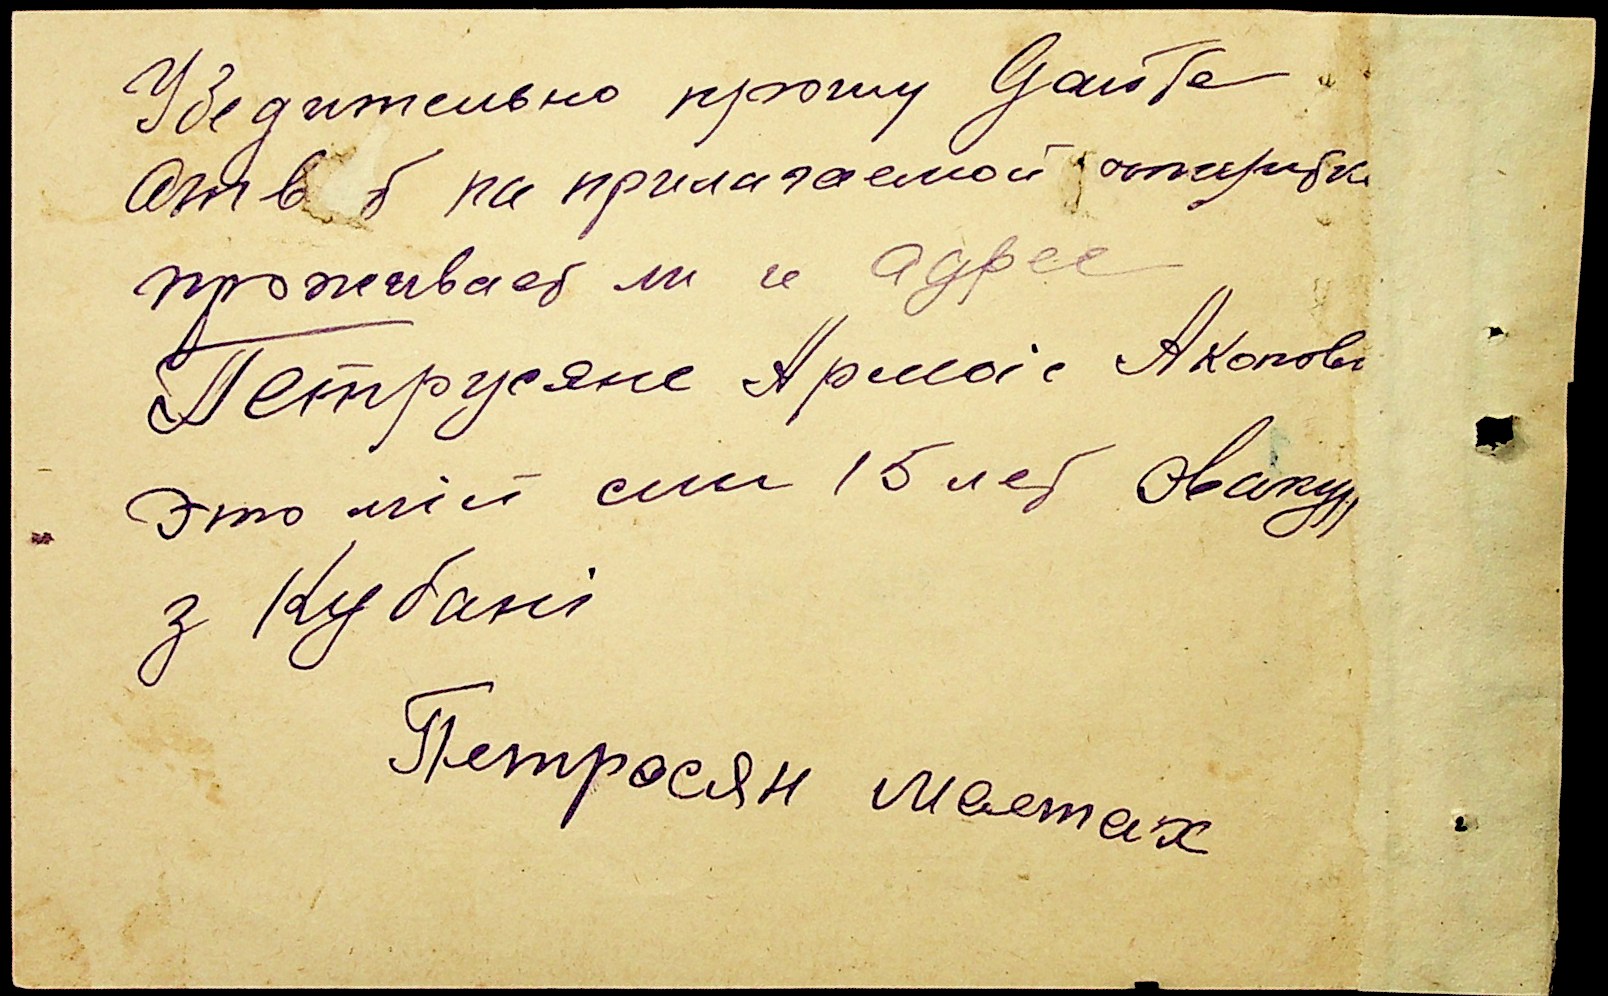 Убедительно прошу дайте
Отв б на прилагаемой открытке
проживаеб ли и адрес
Петрусянс Армаіс Акопови
Это мій сын 15 леб Эвакуу
з Кубані
Петросян Маетах